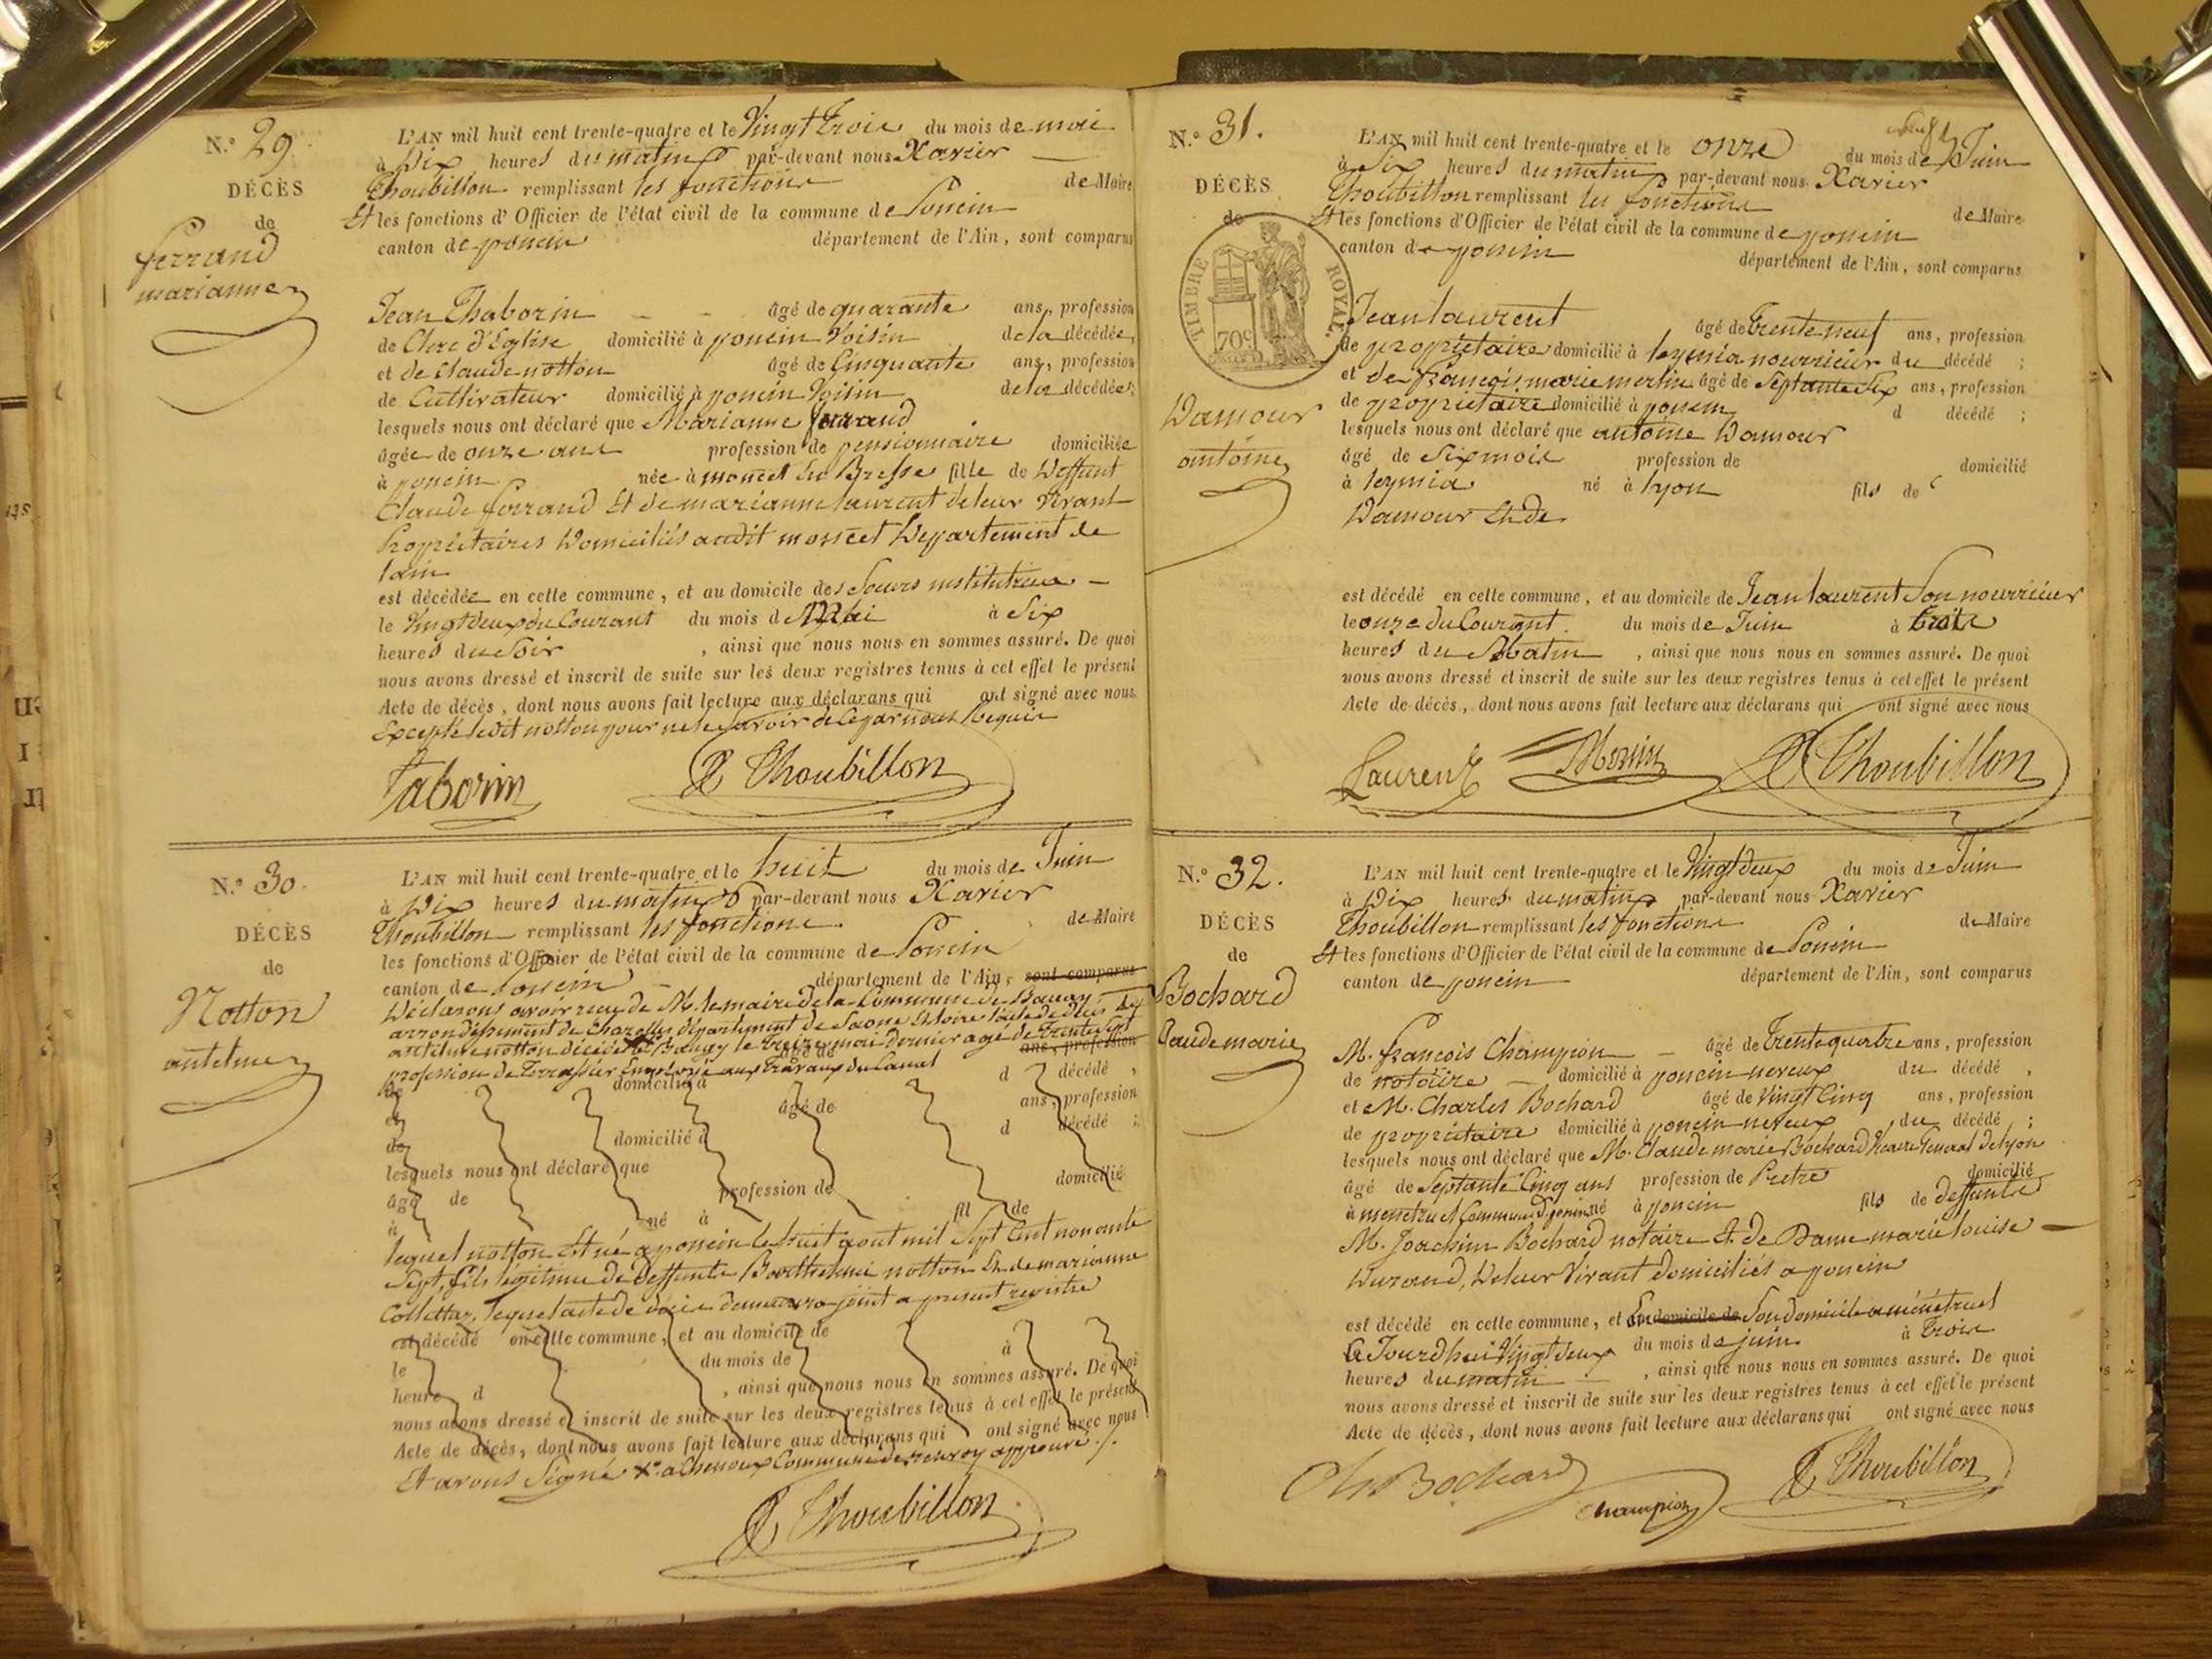 N.° 29.
DÉCÈS
de
ferrand
marianne
L'AN mil huit cent trente-quatre et le Vingt trois du mois de mai
à Dix heures du matin par-devant nous Xavier
Thoubillon remplissant les fonctions de Maire
Et les fonctions d'Officier de l'état civil de la commune de Poncin
canton de poncin département de l'Ain, sont comparus
Jean Thaborin âgé de quarante ans, profession
de Clerc d'Eglise domicilié à poncin Voisin de la décédée,
et de Claude notton âgé de Cinquante ans, profession
de Cultivateur domicilié à poncin Voisin de la décédée;
lesquels nous ont déclaré que Marianne ferrand
âgée de onze ans profession de pensionnaire domiciliée
à poncin née à moncet en Bresse fille de Deffunt
Claude ferrand Et de marianne laurent de leur vivant
Propriétaires Domiciliés audit moncet Département de
lain
est décédée en cette commune, et au domicile des Soeurs institutrices
le Vingt deux du Courant du mois de Mai à Six
heures du Soir , ainsi que nous nous en sommes assuré. De quoi
nous avons dressé et inscrit de suite sur les deux registres tenus à cet effet le présent
Acte de décès, dont nous avons fait lecture aux déclarans qui ont signé avec nous
Excepté ledit notton pour ne le Savoir de Ce par nous Requis
Taborin X Thoubillon
N.° 30.
DÉCÈS
de
Notton
antelme
L'AN mil huit cent trente-quatre et le huit du mois de Juin
à Dix heures du matin par-devant nous Xavier
Thoubillon remplissant les fonctions de Maire
les fonctions d'Officier de l'état civil de la commune de Poncin
canton de Poncin département de l'Ain, sont comparus
Déclarons avoir recu de M. le maire de la Commune de Baugy
arrondissement de Charolles département de Saone Et loire l'acte de décès de
antelme notton décédé à Baugy le treize mai dernier agé de Trente Sept
âgé de ans, profession
profession de Terrassier Employé aux Travaux du Canal
de domicilié à d décédé ,
et âgé de ans, profession
de domicilié à d décédé ;
lesquels nous ont déclaré que
âgé de profession de domicilié
à né à fil de
lequel notton Est né a poncin le huit aout mil Sept Cent nonante
Sept, fils legitime de Deffunts Barthelemi notton Et de marianne
Collettaz, lequel acte de décès demeurera joint a present registre
est décédé en cette commune, et au domicile de
le du mois de à
heure d , ainsi que nous nous en sommes assuré. De quoi
nous avons dressé et inscrit de suite sur les deux registres tenus à cet effet le présent
Acte de décès, dont nous avons fait lecture aux déclarans qui ont signé avec nous
Et avons Signé X a Chenoux Commune de approuvé
X Thoubillon
N.° 31.
DÉCÈS
de
TIMBRE ROYAL.
70c
Damour
antoine
L'AN mil huit cent trente-quatre et le onze du mois de Juin
à Six heures du matin par-devant nous Xavier
Thoubillon remplissant les fonctions de Maire
Et les fonctions d'Officier de l'état civil de la commune de poncin
canton de poncin département de l'Ain, sont comparus
Jean laurent âgé de trente neuf ans, profession
de propriétaire domicilié à leymia nourricier du décédé ;
et de francois marie merlin âgé de Septante Six ans, profession
de propriétaire domicilié à poncin d décédé ;
lesquels nous ont déclaré que antoine Damour
âgé de Six mois profession de domicilié
à leymia né à lyon fils de
Damour Et de
est décédé en cette commune, et au domicile de Jean laurent Son nourricier
le onze du Courant du mois de Juin à trois
heures du Matin , ainsi que nous nous en sommes assuré. De quoi
nous avons dressé et inscrit de suite sur les deux registres tenus à cet effet le présent
Acte de décès, dont nous avons fait lecture aux déclarans qui ont signé avec nous
Laurent X Thoubillon
N.° 32.
DÉCÈS
de
Bochard
Claude marie
L'AN mil huit cent trente-quatre et le Vingt deux du mois de Juin
à Dix heures du matin par-devant nous Xavier
Thoubillon remplissant les fonctions de Maire
Et les fonctions d'Officier de l'état civil de la commune de Poncin
canton de poncin département de l'Ain, sont comparus
M. francois Champion âgé de Trente quatre ans, profession
de notaire domicilié à poncin neveux du décédé ,
et M. Charles Bochard âgé de Vingt Cinq ans, profession
de propriétaire domicilié à poncin neveux du décédé ;
lesquels nous ont déclaré que M. Claude marie Bochard Vicaire General de lyon
âgé de Septante Cinq ans profession de Pretre domicilié
à menetruel Commune de poncin né à poncin fils de deffunts
M. Joachim Bochard notaire Et de Dame marie louise
Durand, De leur Vivant domiciliés a poncin
est décédé en cette commune, et En domicile de Son domicile a ménétruel
Ce Jourdhui Vingt deux du mois de juin à Trois
heures du matin , ainsi que nous nous en sommes assuré. De quoi
nous avons dressé et inscrit de suite sur les deux registres tenus à cet effet le présent
Acte de décès, dont nous avons fait lecture aux déclarans qui ont signé avec nous
Ch Bochard Champion X Thoubillon